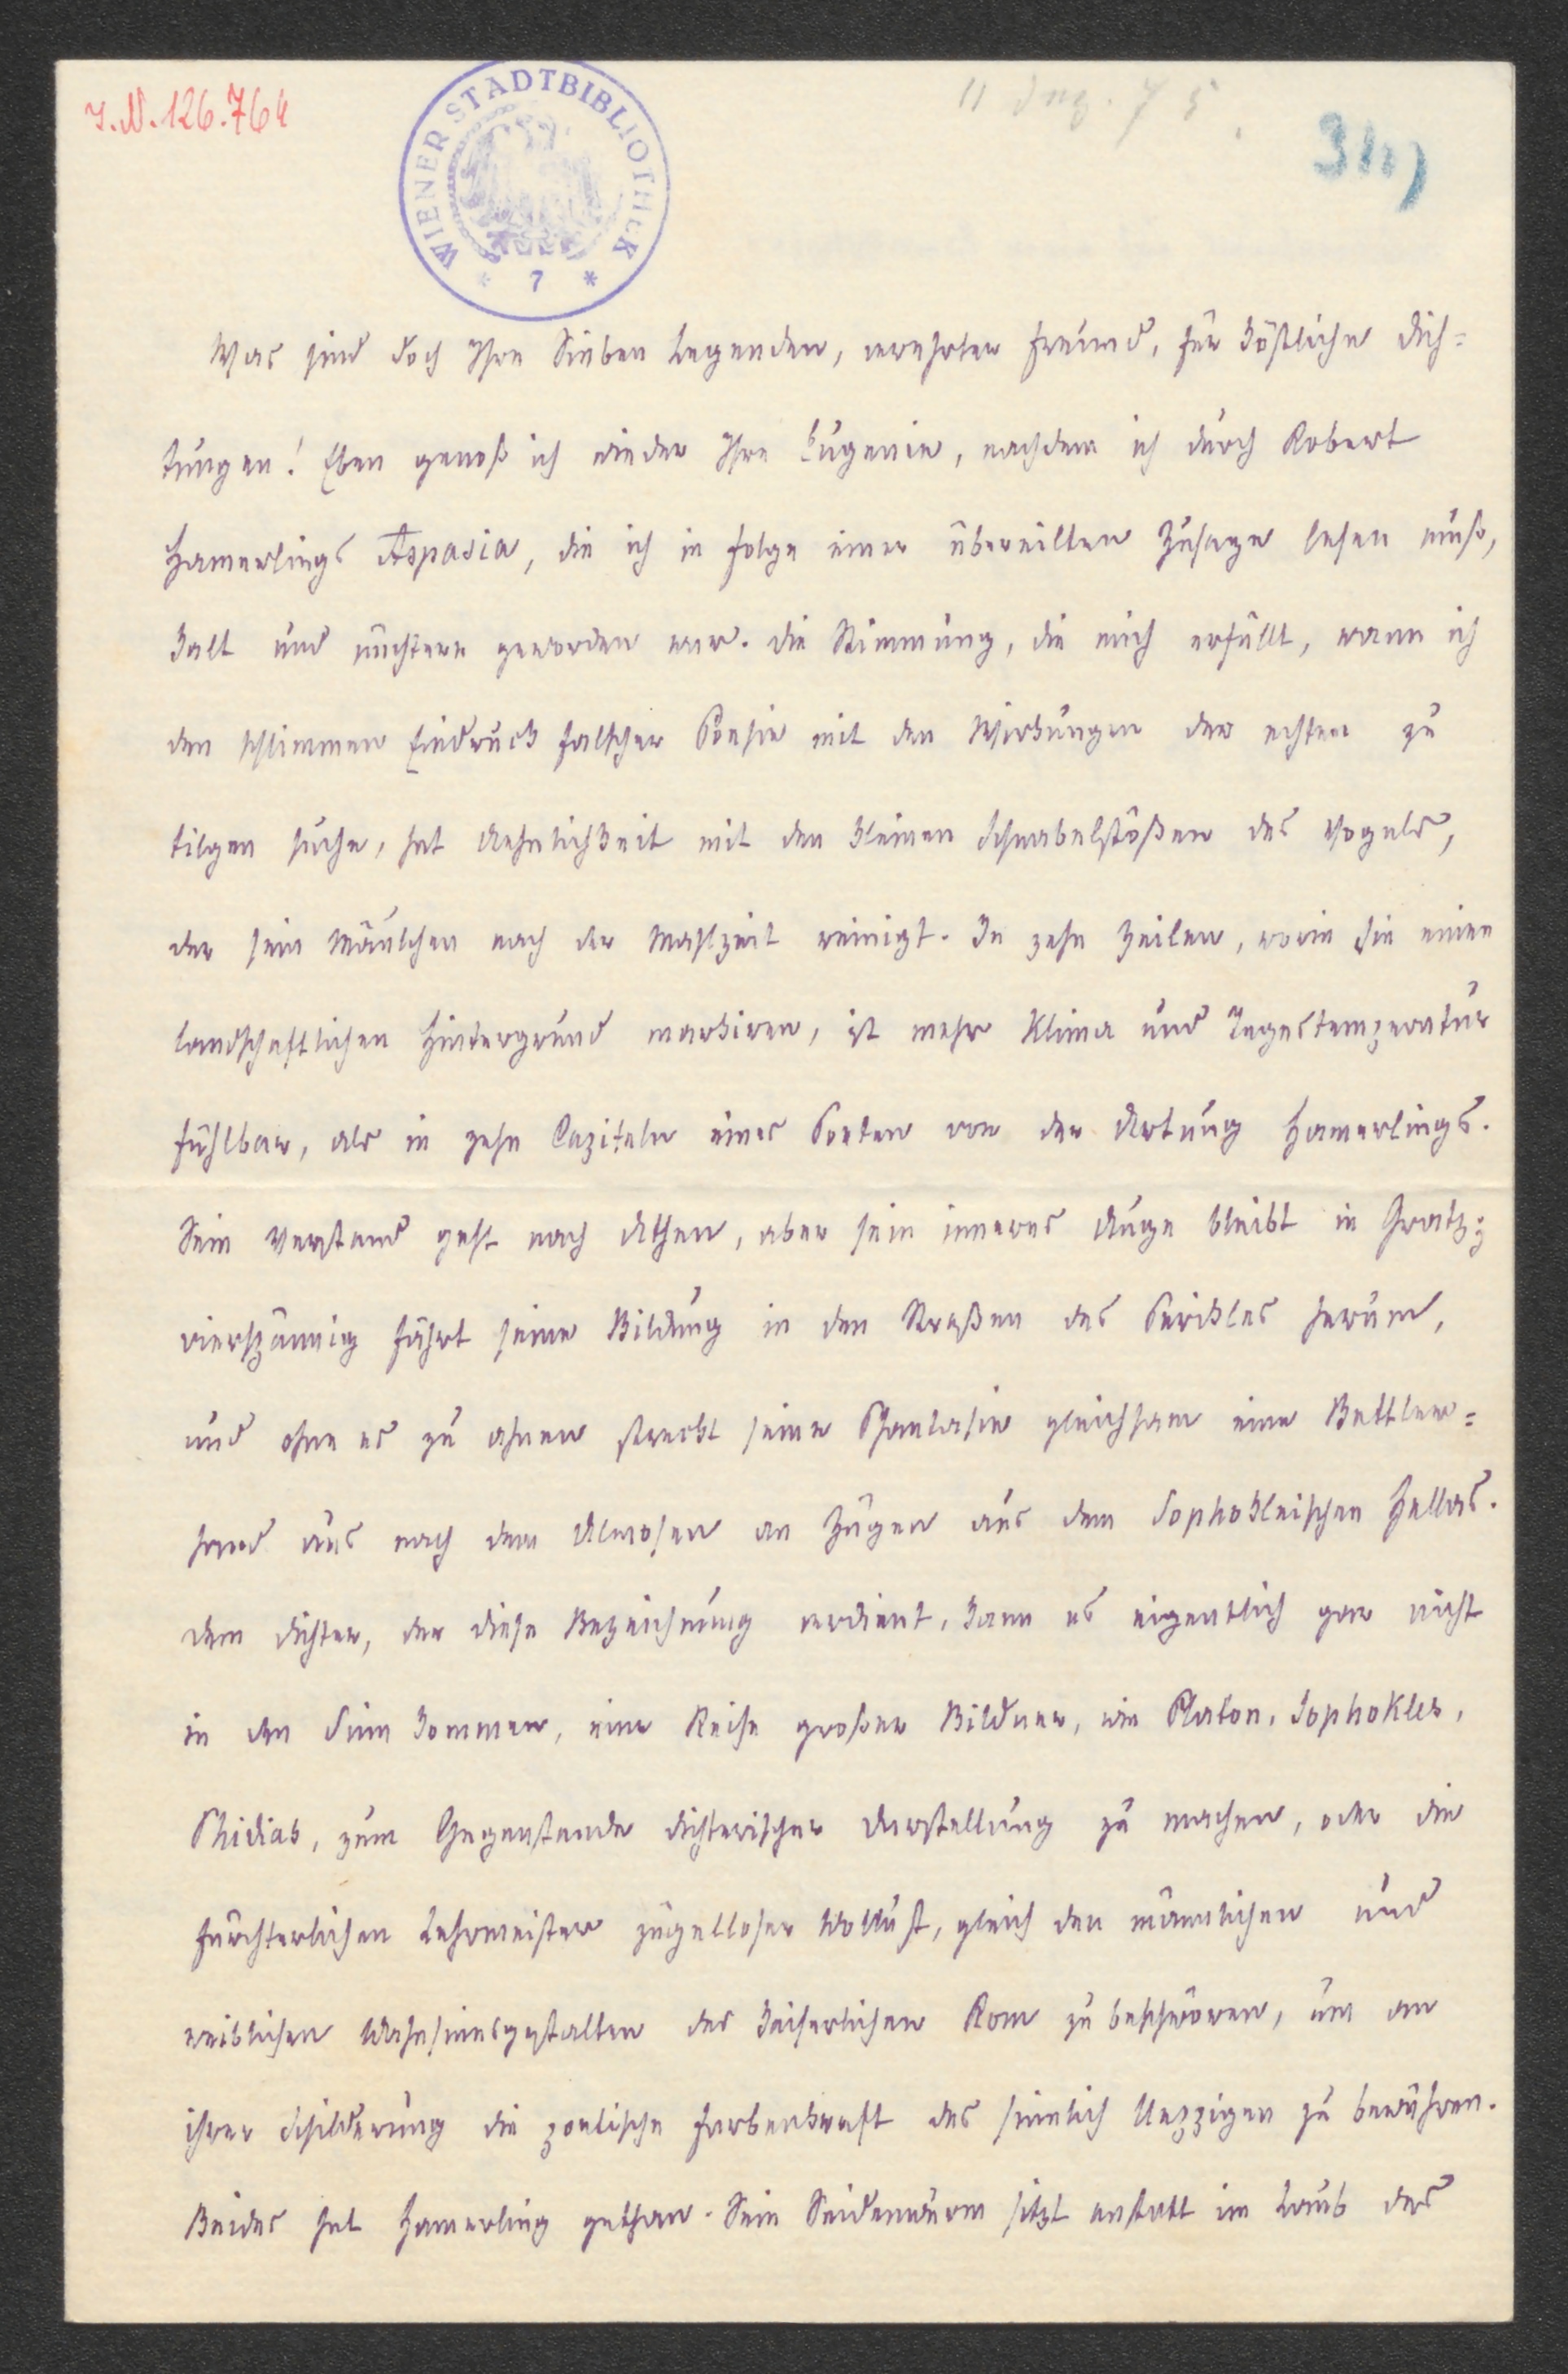 I.N. 126.764
WIENER STADTBIBLIOTHEK
* 7 *
11 Dez. 75.
Was sind doch Ihre Sieben Legenden, verehrter Freund, für köstliche Dich=
tungen! Eben genoß ich wieder Ihre Eugenia, nachdem ich durch Robert
Hamerlings Aspasia, die ich in Folge einer übereilten Zusage lesen muß,
kalt und nüchtern geworden war. Die Stimmung, die mich erfüllt, wann ich
den schlimmen Eindruck falscher Poesie mit den Wirkungen der echten zu
tilgen suche, hat Aehnlichkeit mit den kleinen Schnabelstößen des Vogels,
der sein Mäulchen nach der Mahlzeit reinigt. In zehn Zeilen, worin Sie einen
landschaftlichen Hintergrund markiren, ist mehr Klima und Tagestemperatur
fühlbar, als in zehn Capiteln eines Poeten von der Artung Hamerlings.
Sein Verstand geht nach Athen, aber sein inneres Auge bleibt in Gratz;
vierspännig fährt seine Bildung in den Straßen des Perikles herum,
und ohne es zu ahnen streckt seine Phantasie gleichsam eine Bettler=
hand aus nach dem Almosen an Zügen aus dem Sophokleischen Hellas.
Dem Dichter, der diese Bezeichnung verdient, kann es eigentlich gar nicht
in den Sinn kommen, eine Reihe großer Bildner, wie Platon, Sophokles,
Phidias, zum Gegenstande dichterischer Darstellung zu machen, oder die
fürchterlichen Lehrmeister zügelloser Wollust, gleich den männlichen und
weiblichen Wahnsinnsgestalten des kaiserlichen Rom zu beschwören, um an
ihrer Schilderung die poetische Farbenkraft des sinnlich Ueppigen zu bewähren.
Beides hat Hamerling gethan. Sein Seidenwurm sitzt anstatt im Laub des